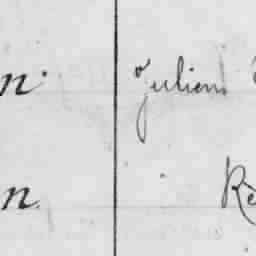 n. Julien
n. Re